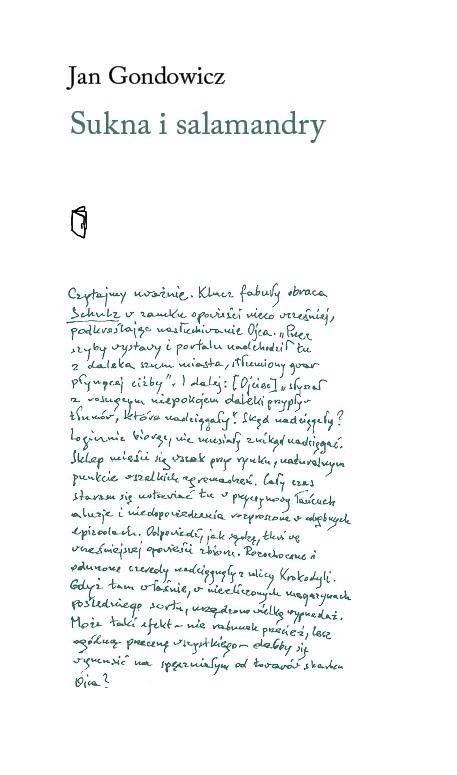 Jan Gondowicz
Sukna i salamandry
Czytajmy uważnie. Klucz fabuły obraca
Schulz w zamku opowieści nieco wcześniej,
podkreślając nasłuchiwanie Ojca. „Przez
szyby wystawy i portalu nadchodził tu
z daleka szum miasta, stłumiony gwar
płynącej ciżby”. I dalej: [Ojciec] „słyszał
z rosnącym niepokojem daleki przypływ
tłumów, które nadciągały”. Skąd nadciągały?
Logicznie biorąc, nie musiały znikąd nadciągać.
Sklep mieści się wszak przy rynku, naturalnym
punkcie wszelkich zgromadzeń. Cały czas
staram się wstawiać tu w przyczynowy łańcuch
aluzje i niedopowiedzenia rozproszone w odrębnych
epizodach. Odpowiedź, jak sądzę, tkwi we
wcześniejszej opowieści zbioru. Rozochocone i
odurzone czeredy nadciągnęły z ulicy Krokodyli.
Gdyż tam właśnie, w niezliczonych magazynach
pośledniego sortu, urządzono wielką wyprzedaż.
Może taki efekt – nie rabunek przecież, lecz
ogólną przecenę wszystkiego – dałby się
wymusić na spęczniałym od towarów skarbcu
Ojca?